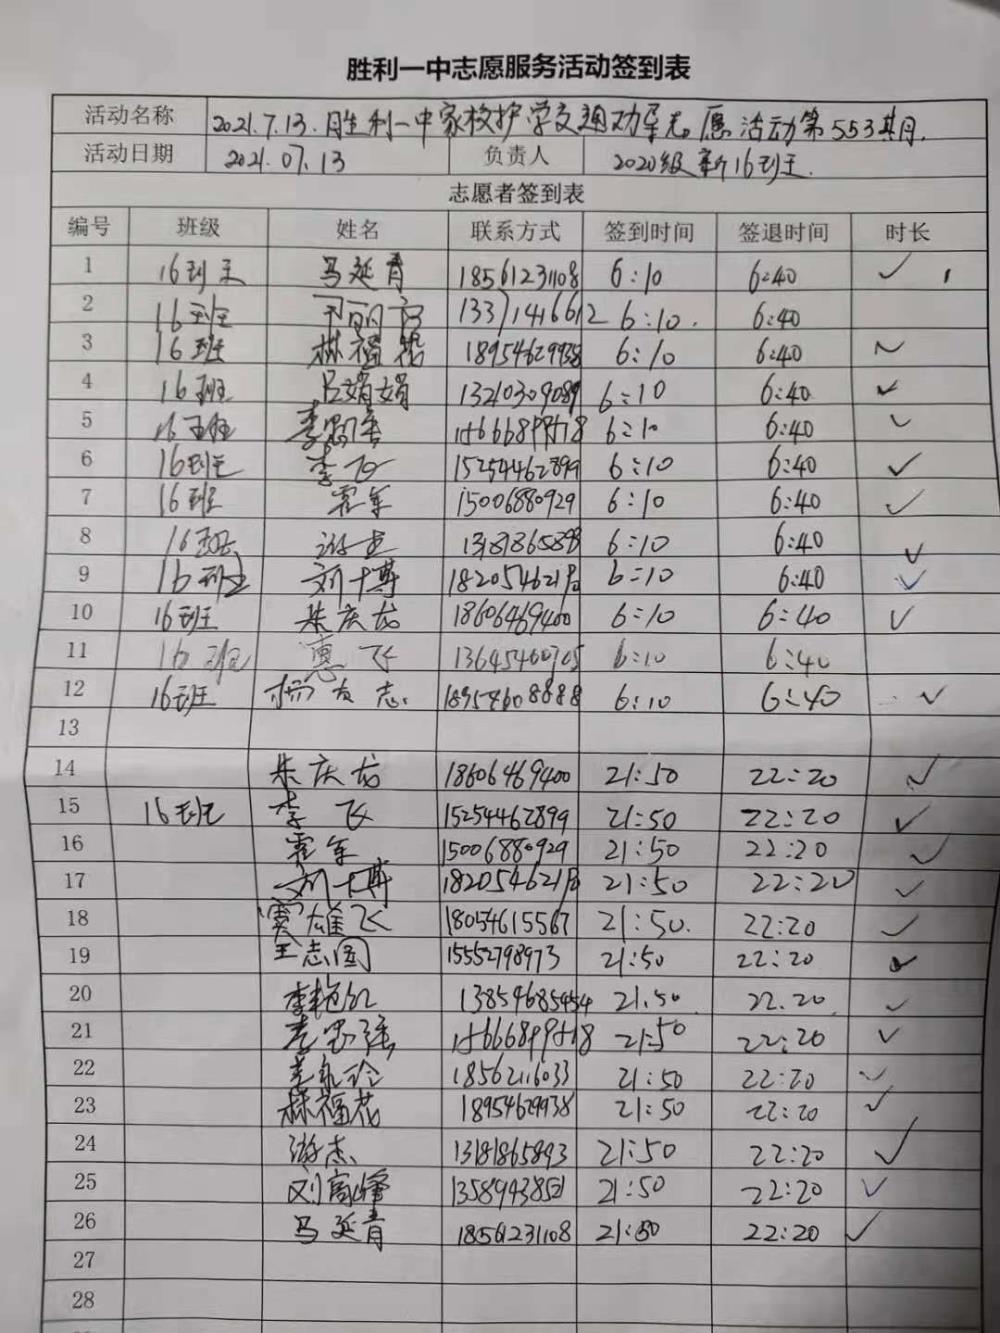 胜利一中志愿服务活动签到表
活动名称 2021.7.13.胜利一中家校护学交通劝导志愿活动第553期.
活动日期 2021.07.13 负责人 2020级新16班
志愿者签到表
编号 班级 姓名 联系方式 签到时间 签退时间 时长
1 16班 马延青 18561231108 6:10 6:40 ✓
2 16班 13371416612 6:10. 6:40
3 16班 林福花 18954629938 6:10 6:40 ✓
4 16班 吕娟娟 13210309089 6:10 6:40 ✓
5 16班 6:10 6:40 ✓
6 16班 李飞 15254462899 6:10 6:40 ✓
7 16班 霍军 15006880929 6:10 6:40 ✓
8 16班 游杰 13181865893 6:10 6:40 ✓
9 16班 刘十博 6:10 6:40 ✓
10 16班 朱庆龙 18606469400 6:10 6:40 ✓
11 16班 惠飞 13645460705 6:10 6:40
12 16班 杨友志. 18954608888 6:10 6:40 ✓
13
14 朱庆龙 18606469400 21:50 22:20 ✓
15 16班 李飞 15254462899 21:50 22:20 ✓
16 霍军 15006880929 21:50 22:20 ✓
17 刘十博 21:50 22:20 ✓
18 贾雄飞 18054615567 21:50. 22:20 ✓
19 王志国 15552798973 21:50 22:20 ✓
20 李艳红 13854685454 21.50 22.20 ✓
21 21:50 22:20 ✓
22 18562116033 21:50 22:20 ✓
23 林福花 18954629938 21:50 22:20 ✓
24 游杰 13181865893 21:50 22:20 ✓
25 刘高峰 13589438521 21:50 22:20 ✓
26 马延青 18561231108 21:50 22:20 ✓
27
28